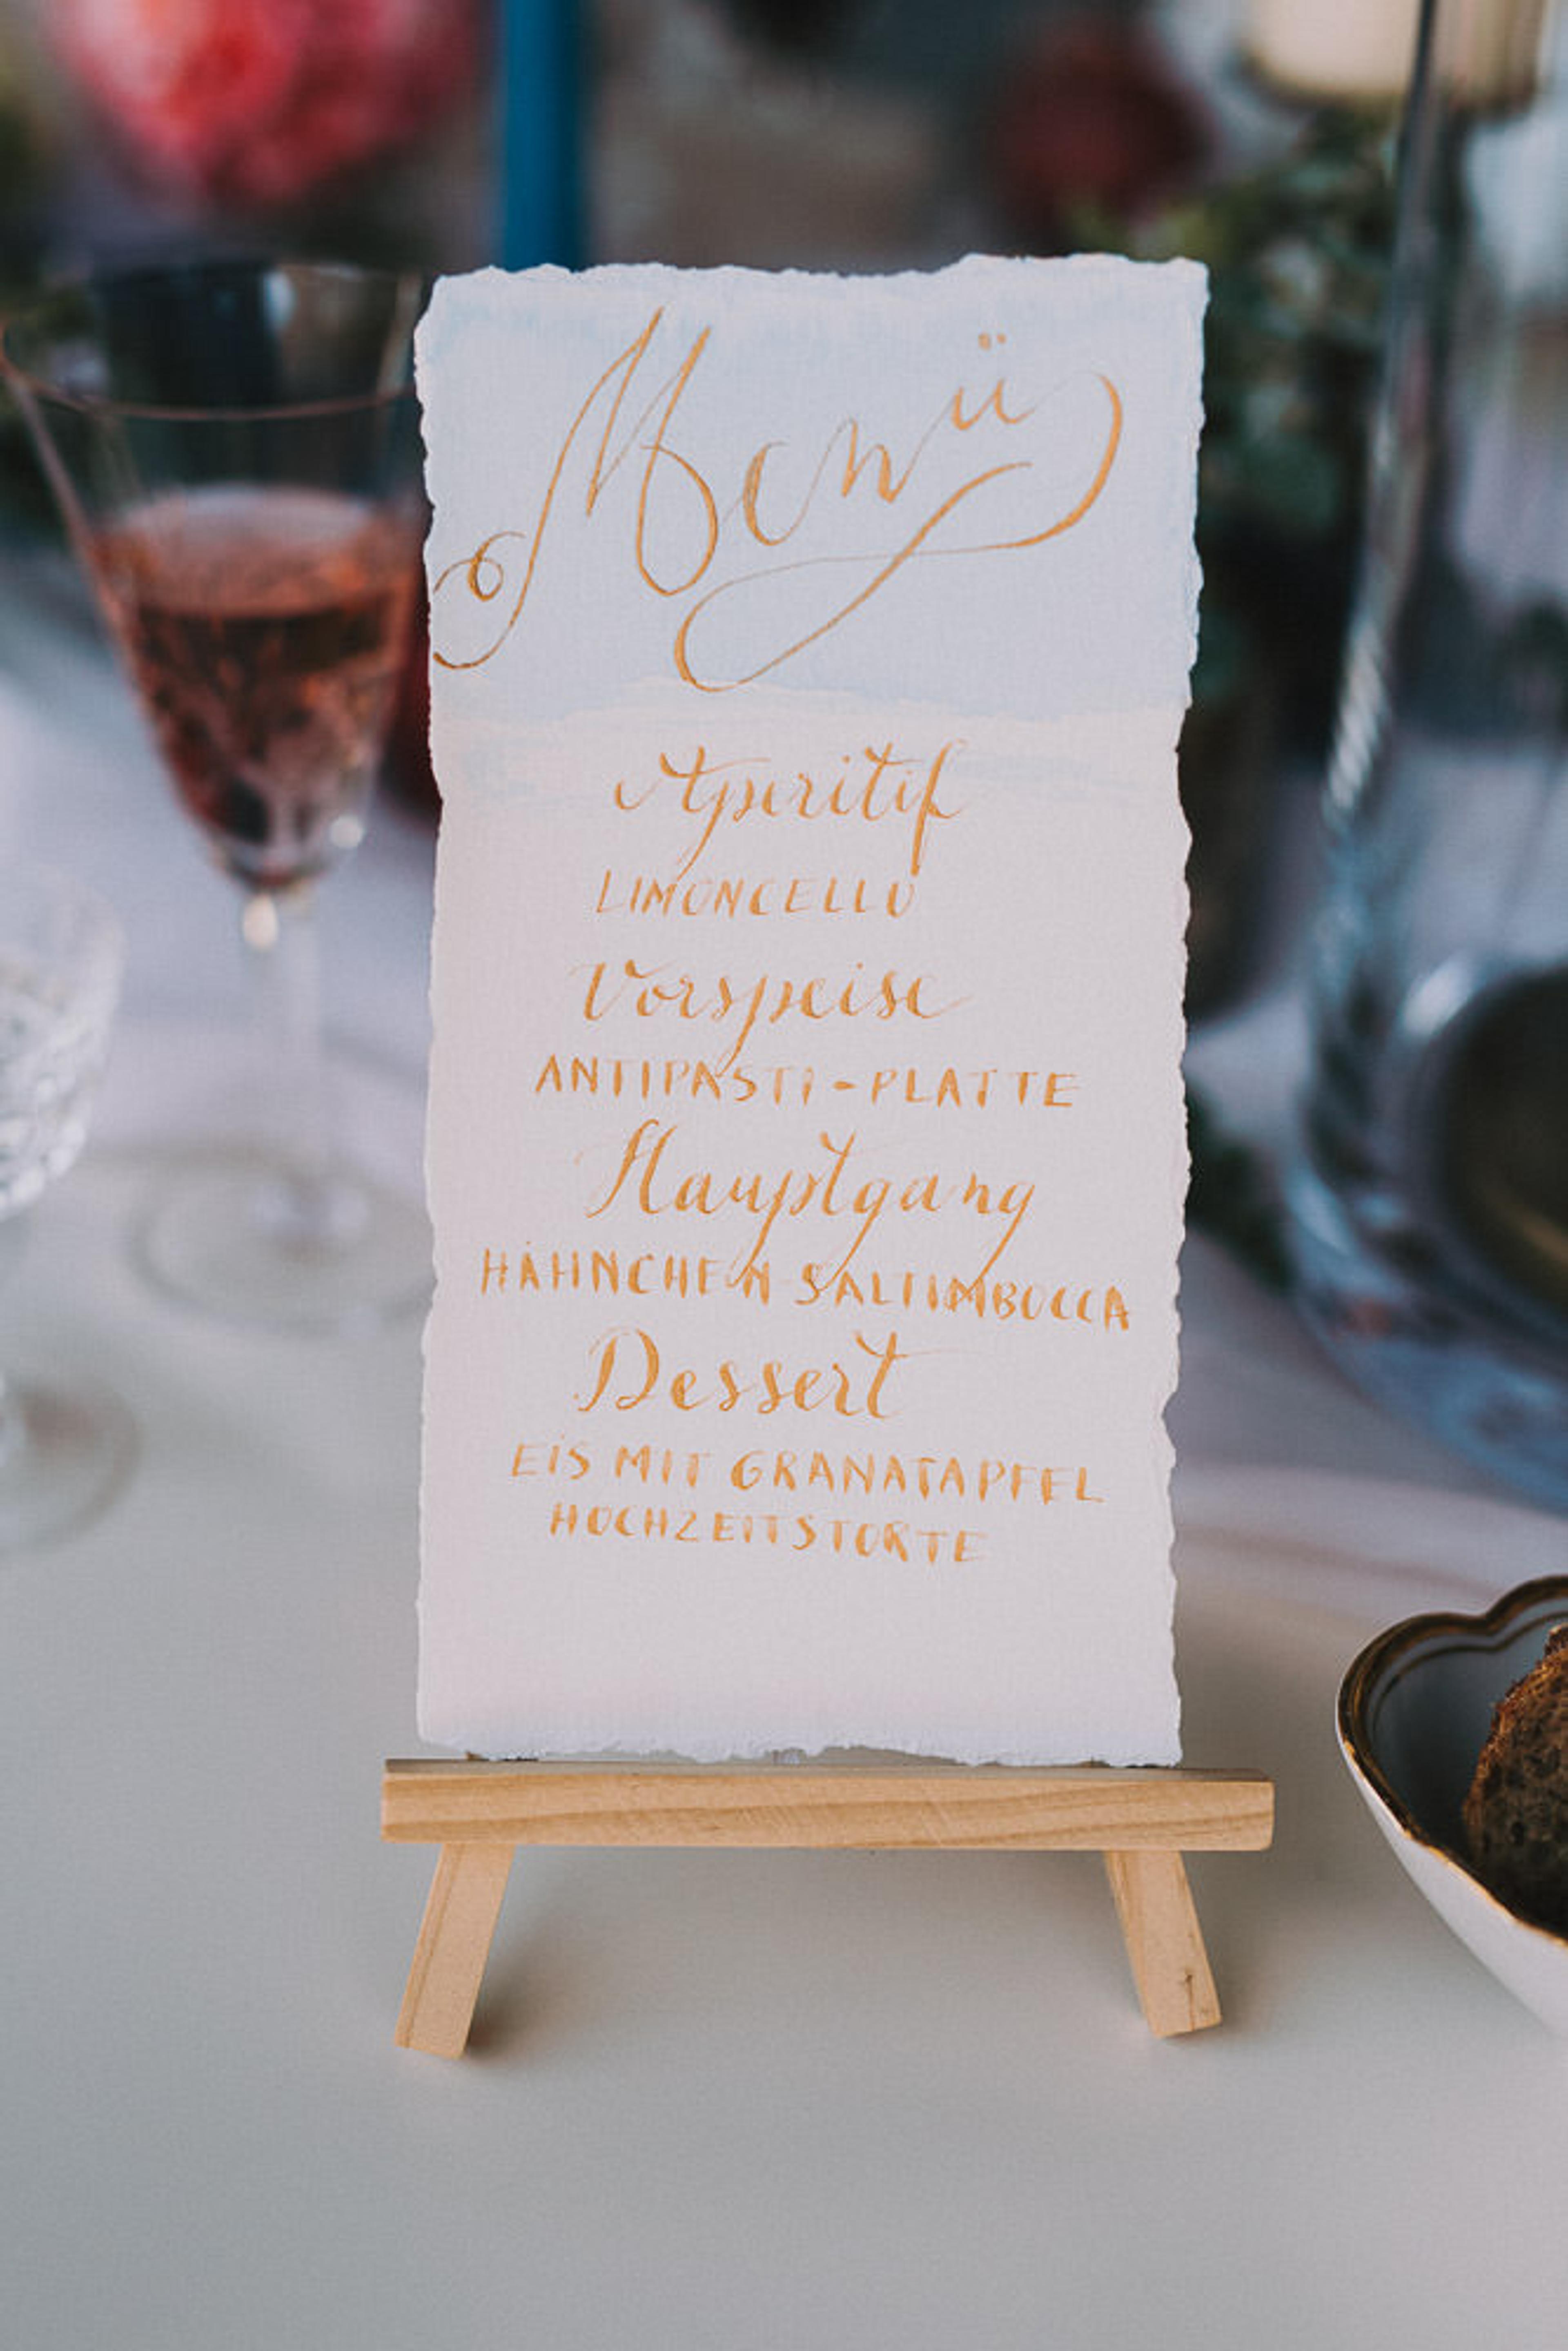 Menü
Aperitif
LIMONCELLO
Vorspeise
ANTIPASTI-PLATTE
Hauptgang
HÄHNCHEN SALTIMBOCCA
Dessert
EIS MIT GRANATAPFEL
HOCHZEITSTORTE